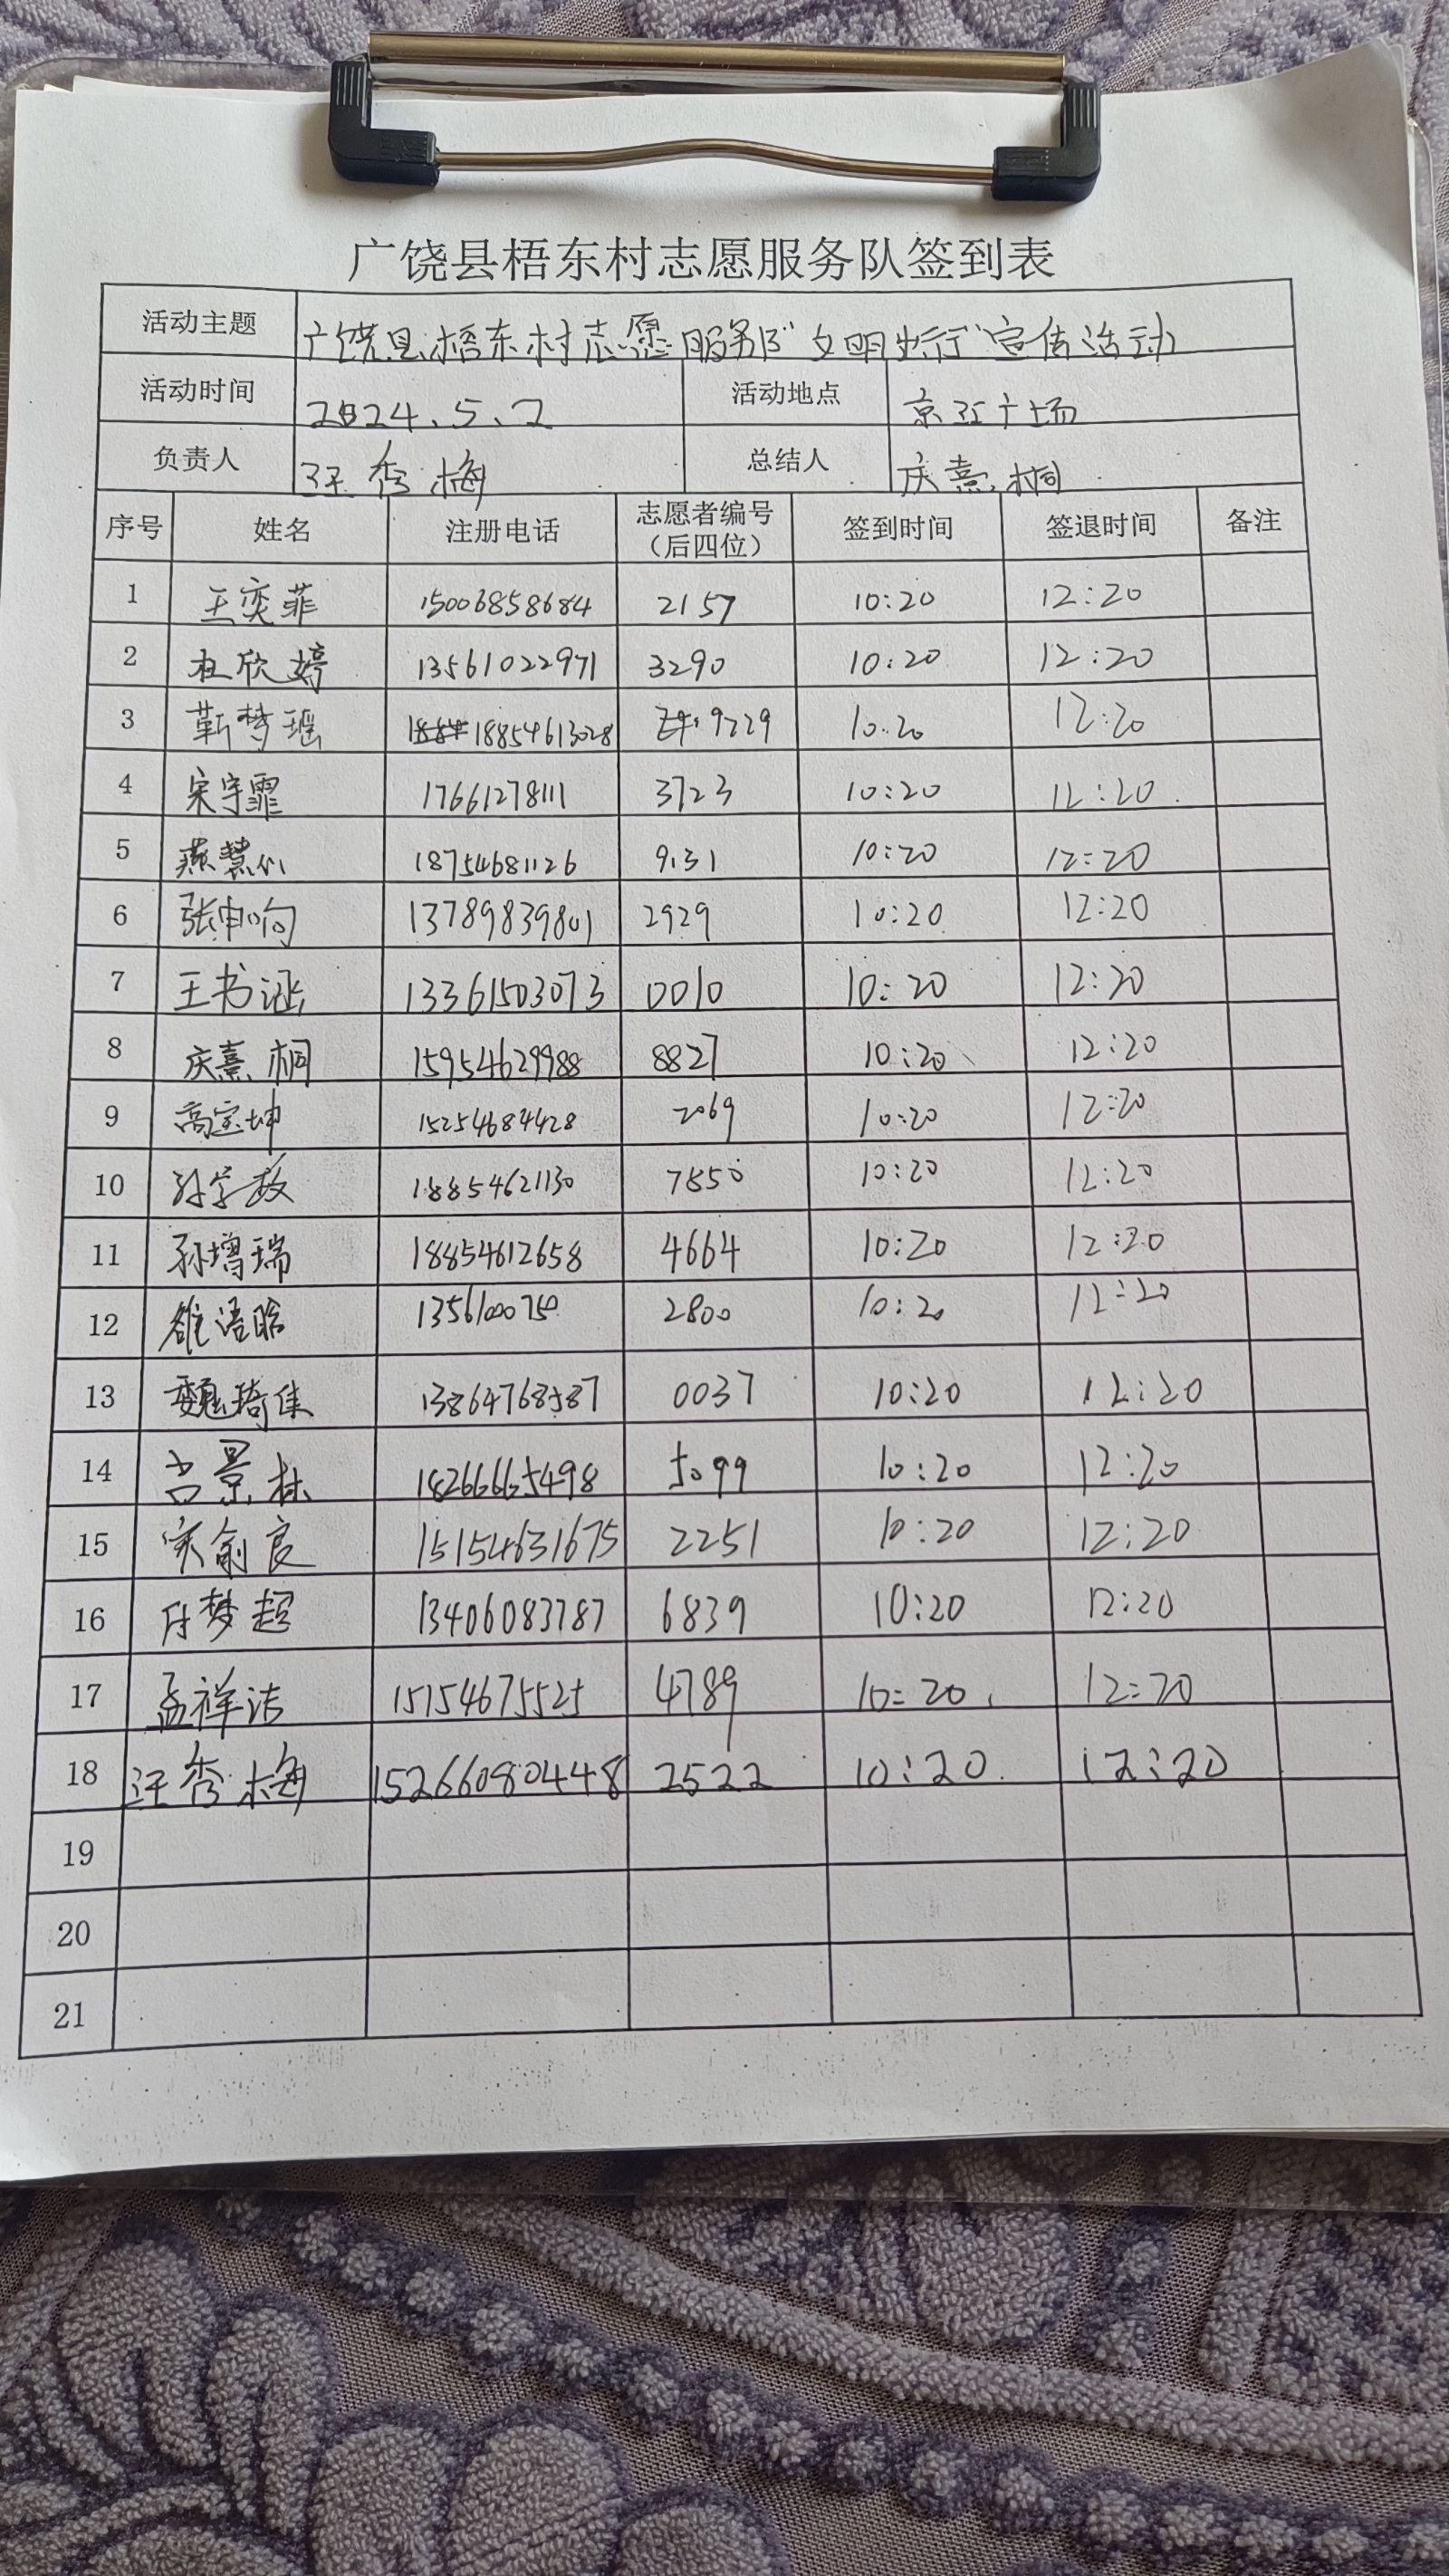 广饶县梧东村志愿服务队签到表
活动主题 广饶县梧东村志愿服务队"文明出行"宣传活动
活动时间 2024.5.2 活动地点
负责人 汪秀梅 总结人 庆熹桐
序号 姓名 注册电话 志愿者编号（后四位） 签到时间 签退时间 备注
1 王奕菲 15006858684 2157 10:20 12:20
2 杜欣婷 13561022971 3290 10:20 12:20
3 靳梦瑶 18854613028 9229 10:20 12:20
4 宋宇霏 17661278111 3723 10:20 12:20
5 18754681126 9131 10:20 12:20
6 13789839801 2929 10:20 12:20
7 王书涵 13361503073 0010 10:20 12:20
8 庆熹桐 15954629988 8827 10:20 12:20
9 高宝坤 15254684428 2069 10:20 12:20
10 18854621130 7850 10:20 12:20
11 孙增瑞 18854612658 4664 10:20 12:20
12 2800 10:20 12:20
13 魏琦佳 13864768587 0037 10:20 12:20
14 18266665498 5099 10:20 12:20
15 15154631675 2251 10:20 12:20
16 任梦超 13406083787 6839 10:20 12:20
17 孟祥洁 15154675525 4789 10:20 12:20
18 汪秀梅 15266080448 2522 10:20 12:20
19
20
21